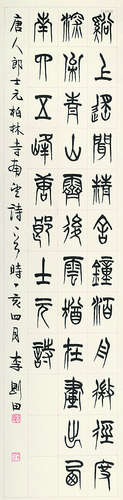 谿上遙聞精舍鐘泊舟微徑度
深松青山霽後雲猶在畫出東
南四五峰唐郎士元詩
唐人郎士元柏林寺南望詩 時乙亥四月李剛田